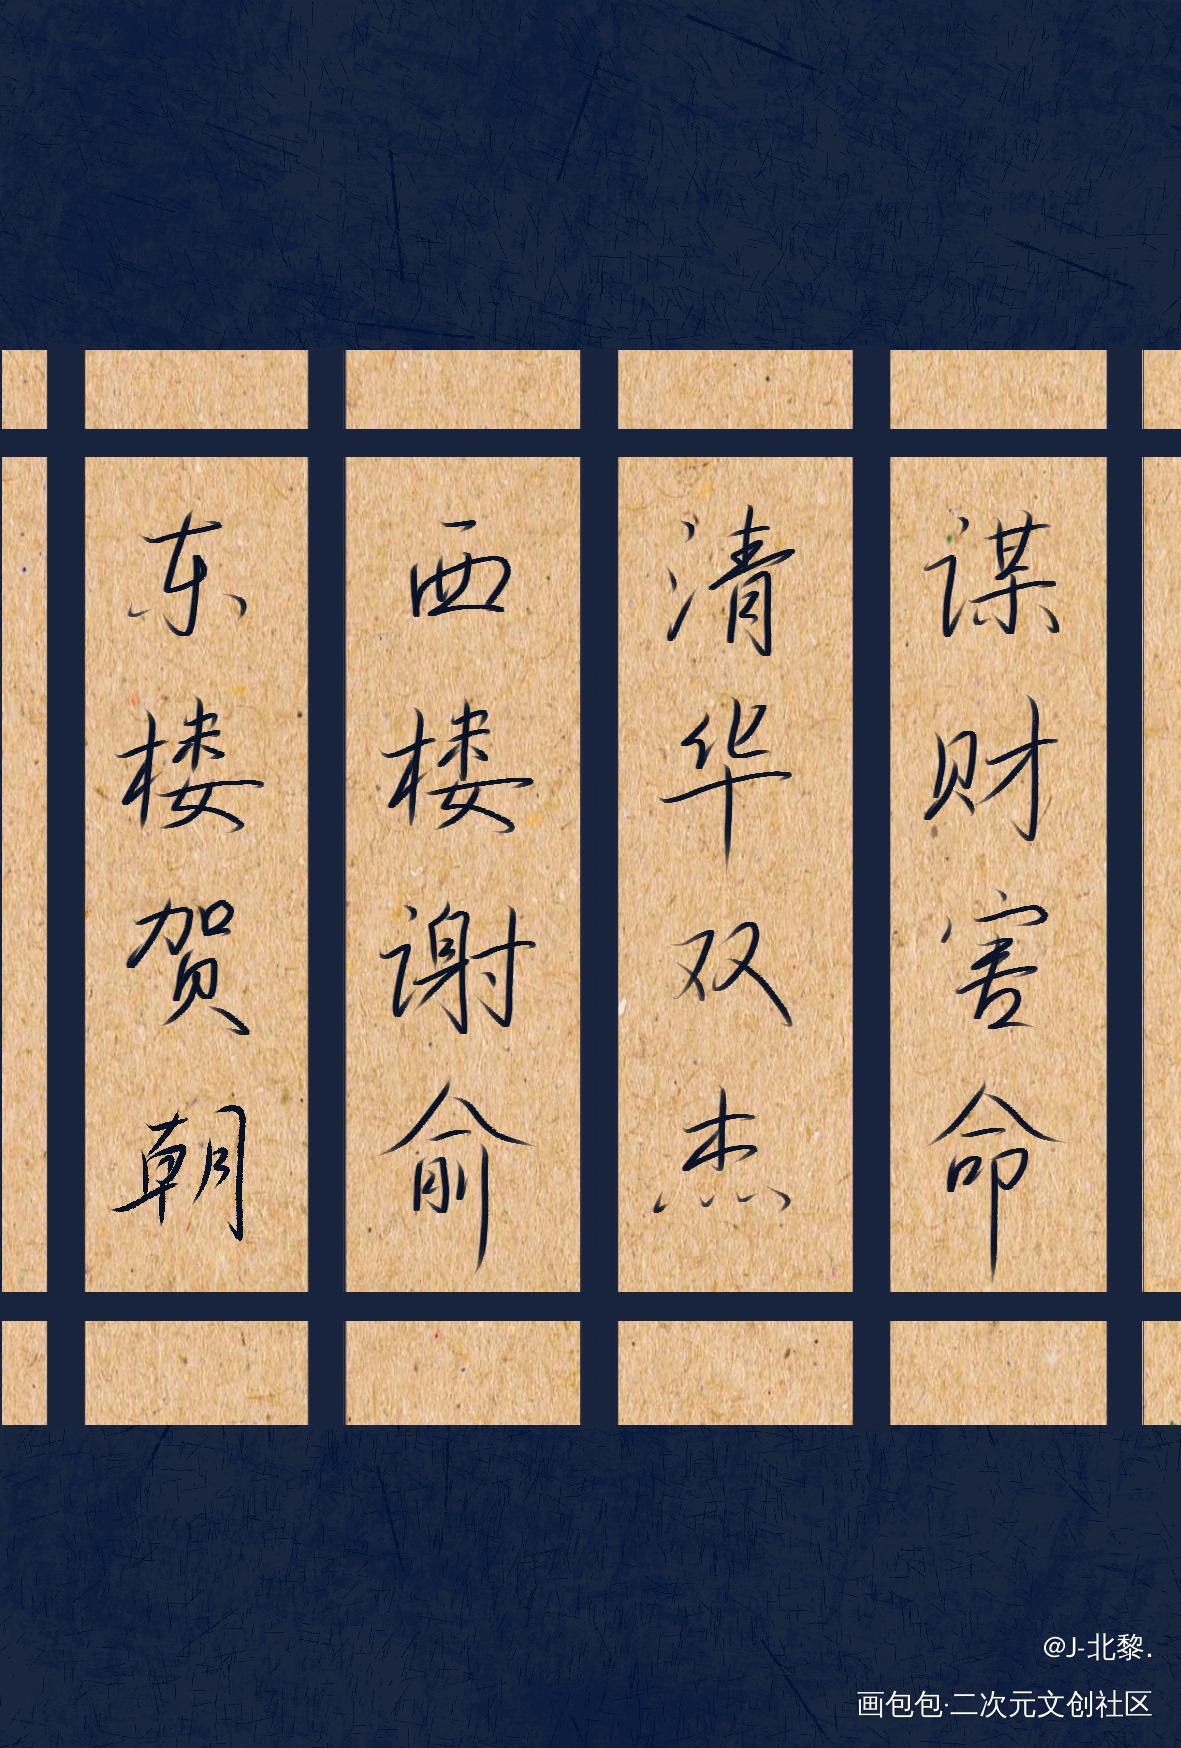 东楼贺朝
西楼谢俞
清华双杰
谋财害命
@J-北黎.
画包包·二次元文创社区